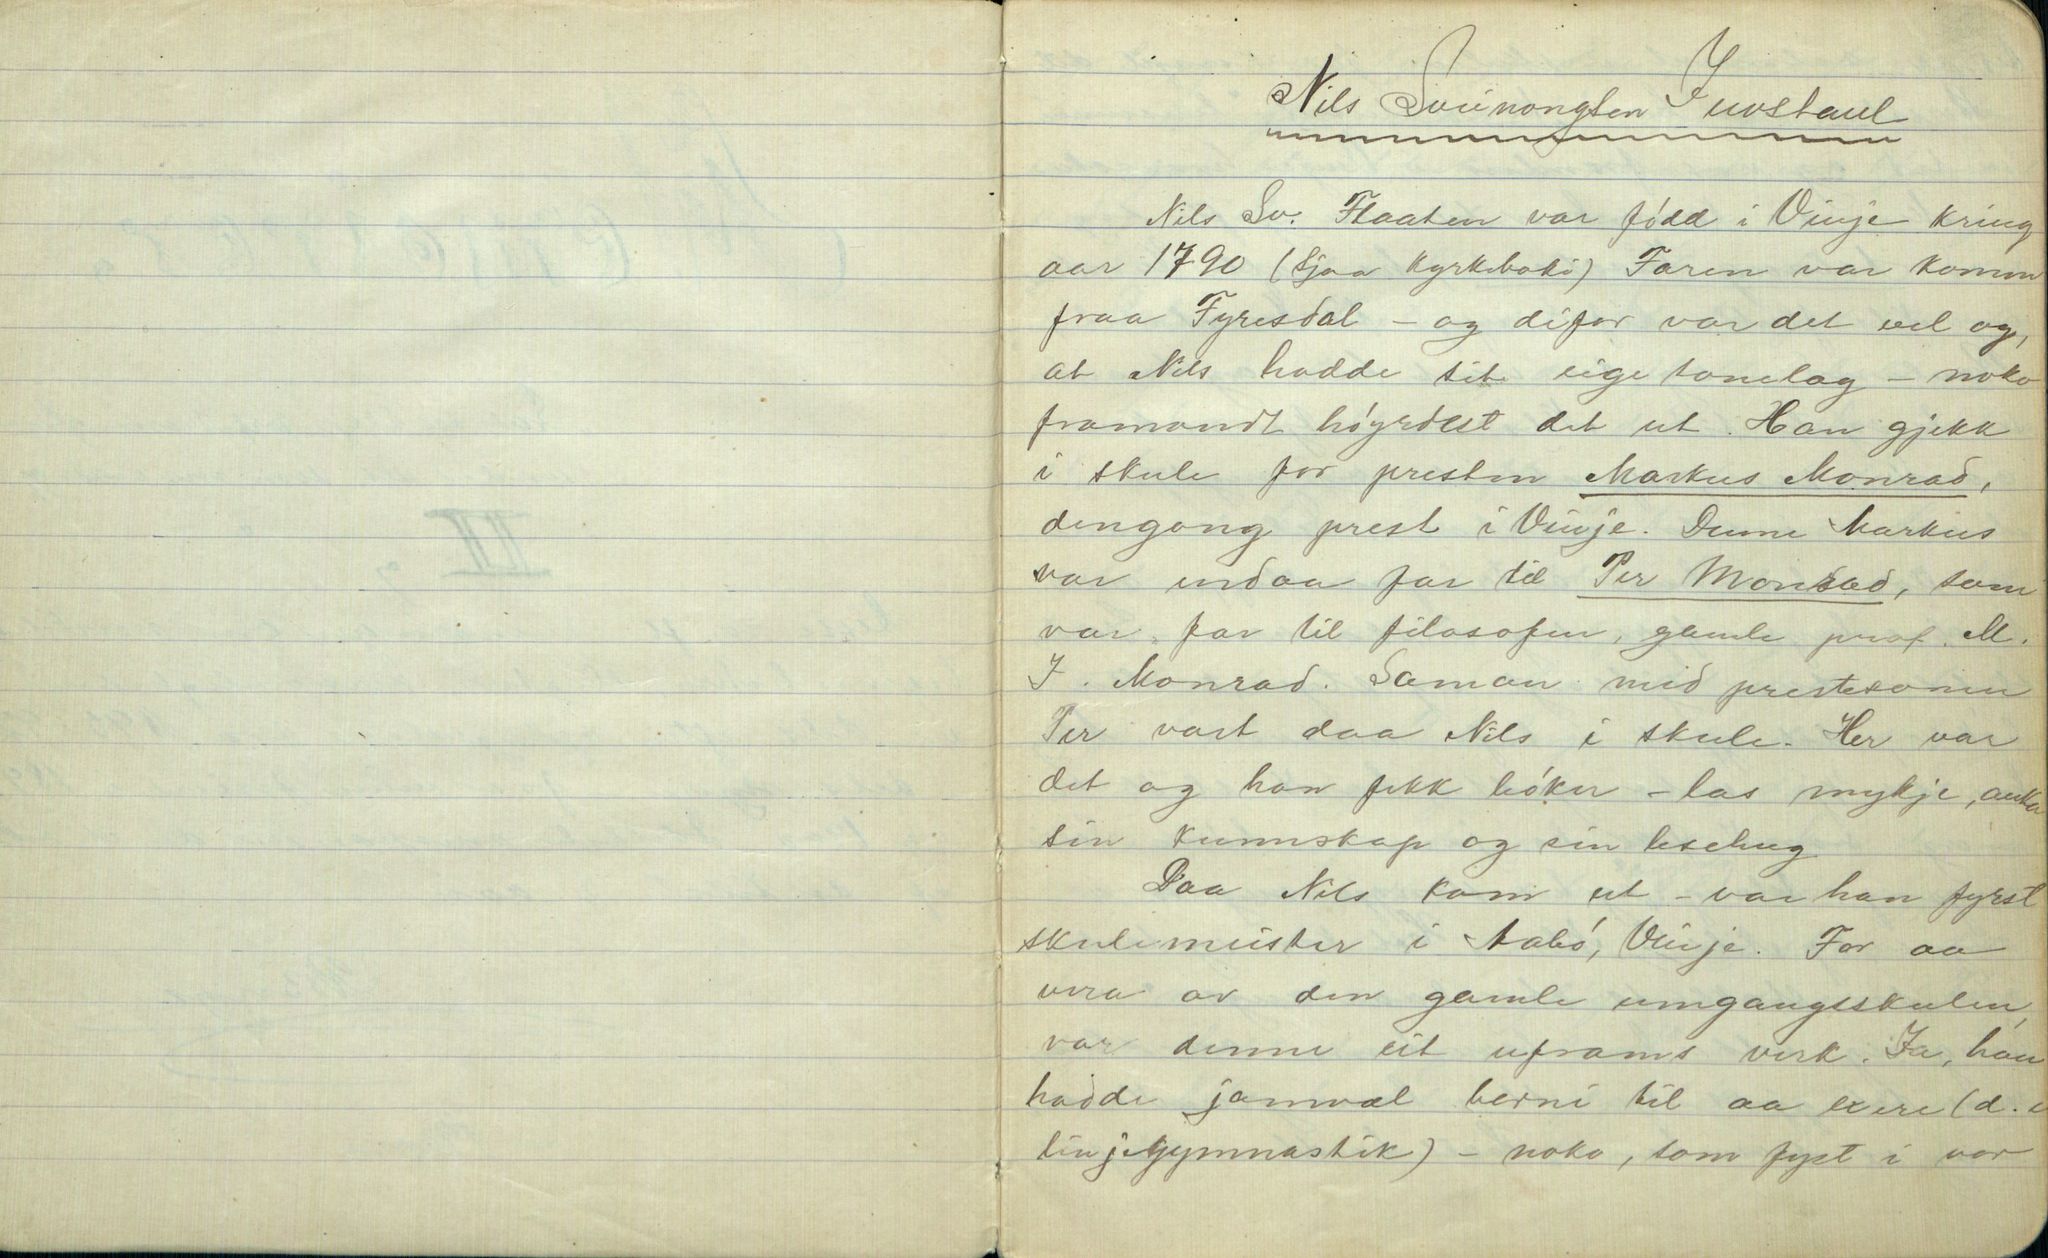 Nils Sveinongsen Juvstaul
Nils Sv. Flaaten var fódd i Vinje kring
aar 1790 (Sjaa kyrkeboki) Faren var komen
fraa Fyresdal – og difor var det vel og,
at Nils hadde sit eige tonelag – noko
framandt hóyrdest det ut. Han gjekk
i skule for presten Markus Monrad,
dengong prest i Vinje. Denne Markus
var endaa far til Per Monrad, som
var far til filosofen, gamle prof. M.
J. Monrad. Saman med prestesonen
Per vart daa Nils i skule. Her var
det og han fekk bóker – las mykje, auka
sin kunnskap og sin lesehug
Daa Nils kom ut – var han fyrst
skulemeister i Aabó, Vinje. For aa
vera av den gamle umgangsskulen,
var denne eit uframs verk. Ja, han
hadde jamvel borni til aa exere (d. e
linjegymnastik) – noko, som fyst i vor